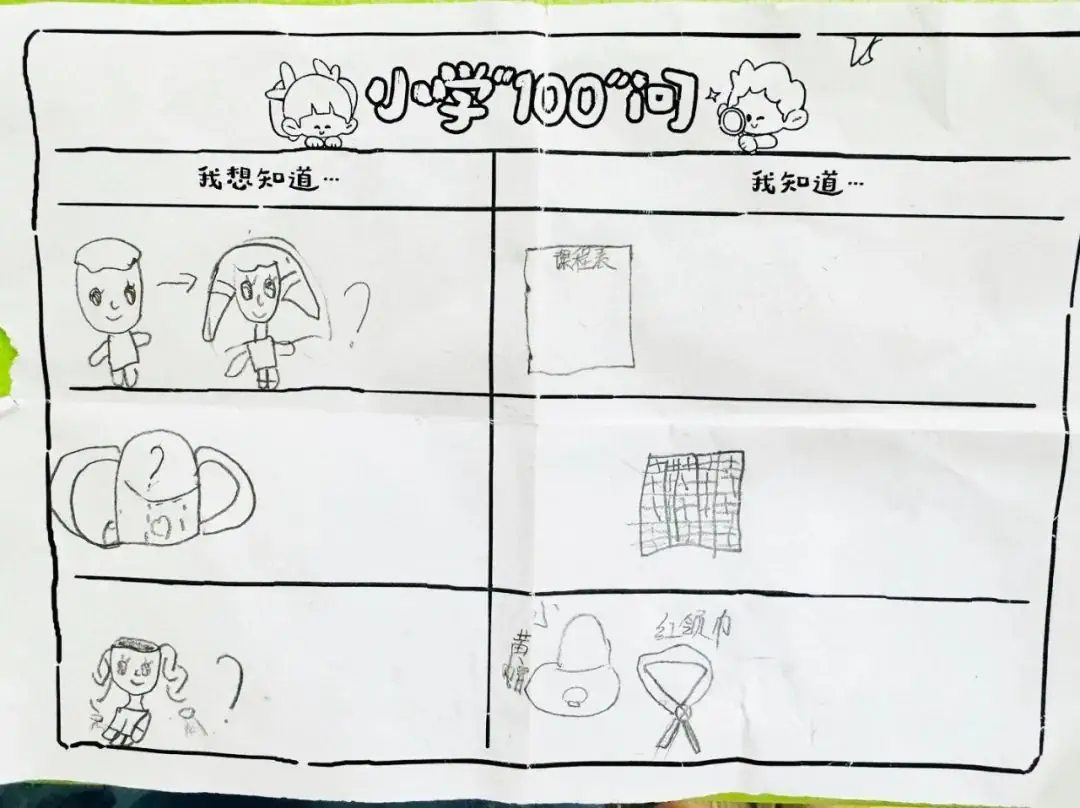 小学“100”问
我想知道…
我知道…
?
课程表
?
?
小
黄
红领巾